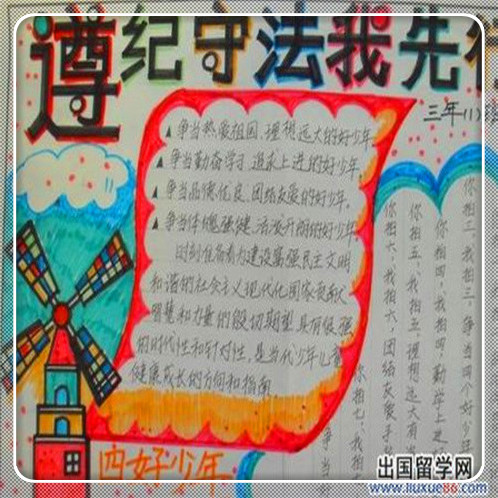 遵纪守法我先行
三年(1)
▲争当热爱祖国、理想远大的好少年
▲争当勤奋学习、追求上进的好少年
▲争当品德优良、团结友爱的好少年
▲争当体魄强健、活泼开朗的好少年
时刻准备着为建设富强民主文明
和谐的社会主义现代化国家贡献
智慧和力量的殷切期望具有很强
的时代性和针对性,是当代少年儿童
健康成长的方向和指南
你拍三,我拍三,争当四个好少年
你拍四,我拍四,勤学上进
你拍五,我拍五,理想远大有
你拍六,我拍六,团结友爱手
你拍七,我拍七
争当
四好少年
出国留学网
www.liuxue86.com